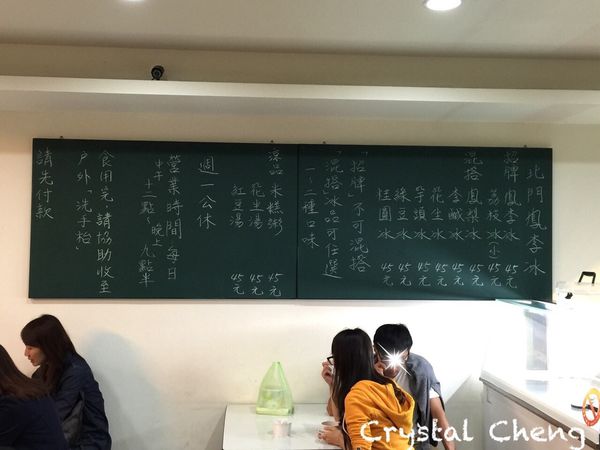 北門鳳李冰
招牌 鳳李冰 45元
荔枝冰(小) 45元
混搭 鳳梨冰 45元
李鹹冰 45元
花生冰 45元
芋頭冰 45元
綠豆冰 45元
桂圓冰 45元
「招牌」不可混搭
「混搭」冰品可任選
一、二種口味
湯品 米糕粥 45元
花生湯 45元
紅豆湯 45元
週一公休
營業時間:每日
中午十二點~晚上九點半
食用完,請協助收至
戶外「洗手枱」
請先付款
Crystal Cheng